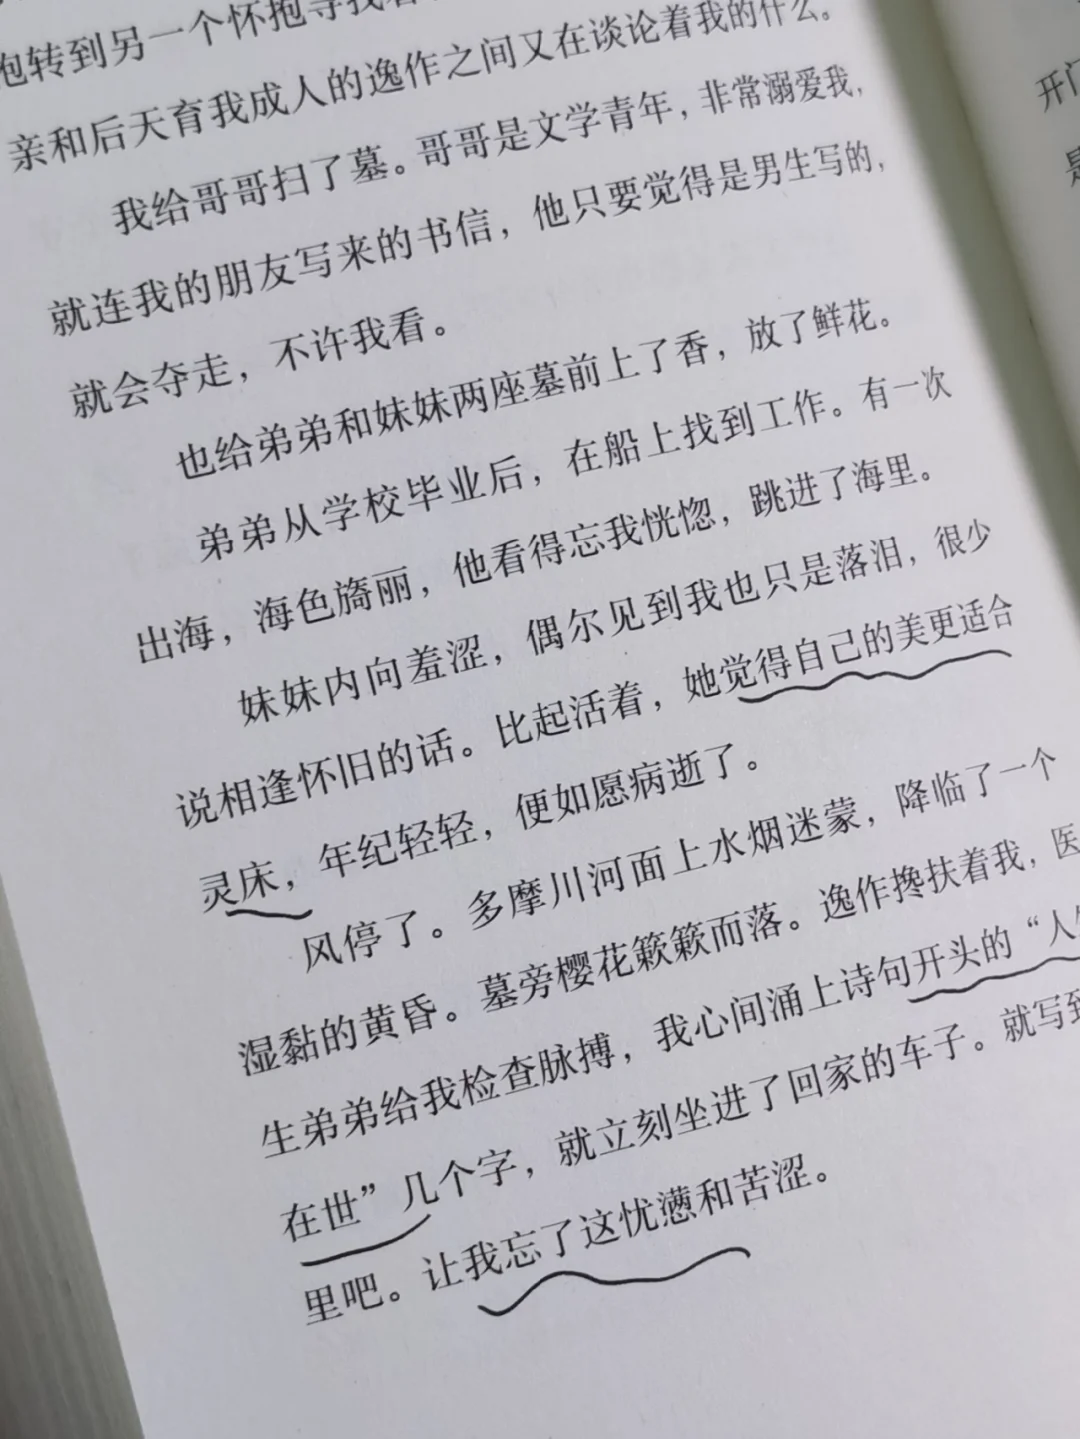 抱转到另一个怀抱寻找着
亲和后天育我成人的逸作之间又在谈论着我的什么。
我给哥哥扫了墓。哥哥是文学青年，非常溺爱我，
就连我的朋友写来的书信，他只要觉得是男生写的，
就会夺走，不许我看。
也给弟弟和妹妹两座墓前上了香，放了鲜花。
弟弟从学校毕业后，在船上找到工作。有一次
出海，海色旖丽，他看得忘我恍惚，跳进了海里。
妹妹内向羞涩，偶尔见到我也只是落泪，很少
说相逢怀旧的话。比起活着，她觉得自己的美更适合
灵床，年纪轻轻，便如愿病逝了。
风停了。多摩川河面上水烟迷蒙，降临了一个
湿黏的黄昏。墓旁樱花簌簌而落。逸作搀扶着我，医
生弟弟给我检查脉搏，我心间涌上诗句开头的“人生
在世”几个字，就立刻坐进了回家的车子。就写到
里吧。让我忘了这忧懑和苦涩。
开门
是